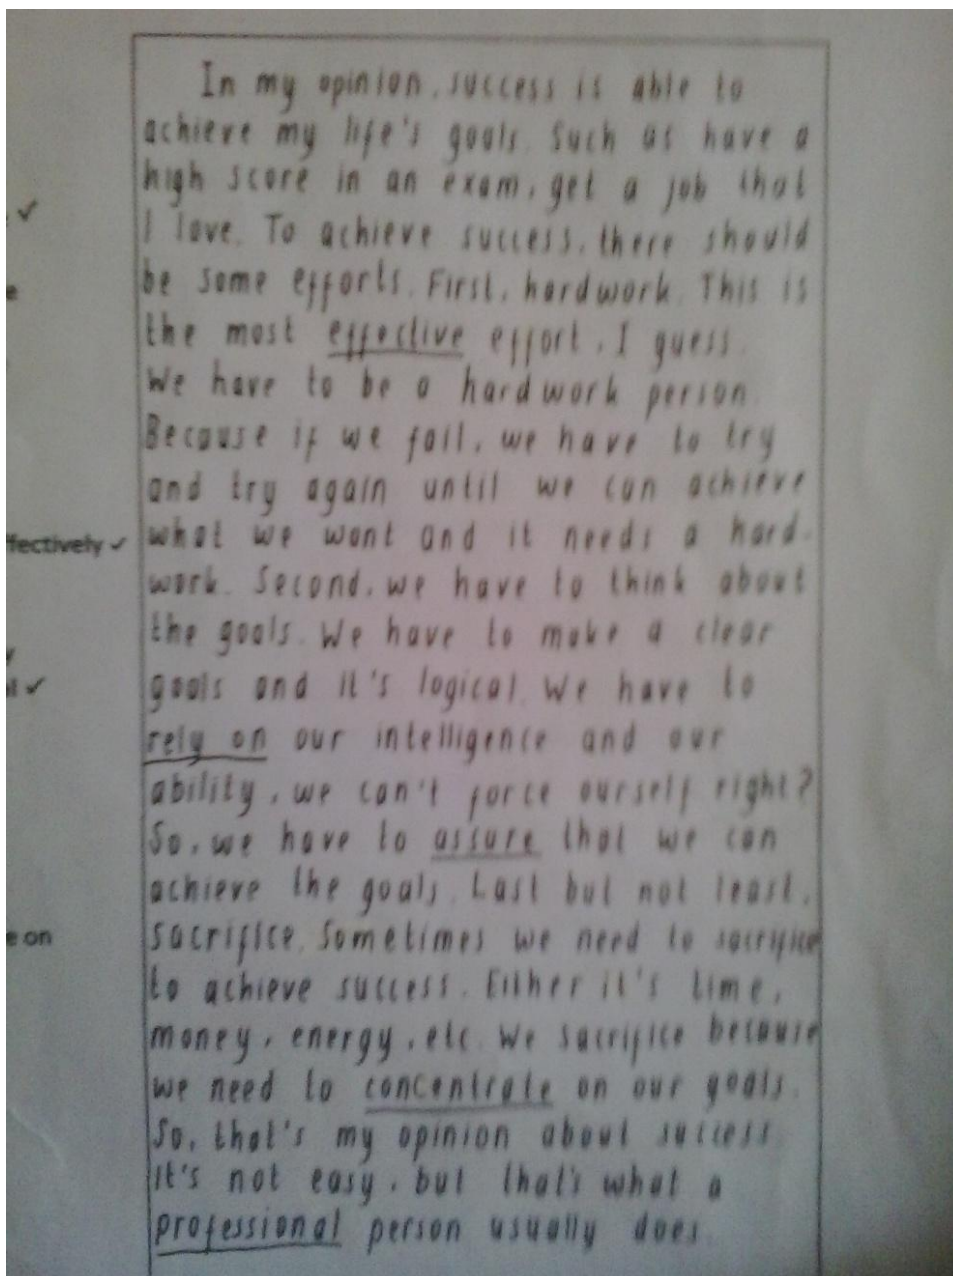 In my opinion, success is able to
achieve my life's goals. Such as have a
high score in an exam, get a job that
I love. To achieve success, there should
be some efforts. First, hardwork. This is
the most effective effort, I guess.
We have to be a hardwork person.
Because if we fail, we have to try
and try again until we can achieve
ffectively ✓ what we want and it needs a hard-
work. Second, we have to think about
the goals. We have to make a clear
goals and it's logical. We have to
rely on our intelligence and our
ability, we can't force ourself right?
So, we have to assure that we can
achieve the goals. Last but not least,
e on sacrifice. Sometimes we need to sacrifice
to achieve success. Either it's time,
money, energy, etc. We sacrifice because
we need to concentrate on our goals.
So, that's my opinion about success
It's not easy, but that's what a
professional person usually does.